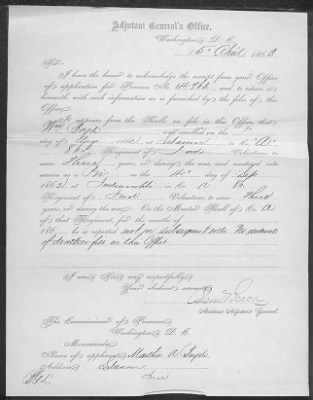 Adjutant General's Office,
Washington, D. C.,
April, 1868.
Sir:
I have the honor to acknowledge the receipt from your Office
of application for Pension No. and to return it
herewith, with such information as is furnished by the files of this
Office.
It appears from the Rolls on file in this Office, that
Wm Boyd was enrolled on the
day of Aug at Lebanon in Co. A
86 Regiment of Ind Volunteers, to
serve three years, or during the war, and mustered into
service as a Pvt. on the 4th day of Sep
1862, at Indianapolis in Co. A 86
Regiment of Ind Volunteers, to serve three
years, or during the war. On the Muster Roll of Co. A
of that Regiment for the months of
186 , he is reported not on subsequent rolls No evidence
of death on file in this Office
I am, Sir, very respectfully,
Your obedient servant,
Assistant Adjutant General.
The Commissioner of Pensions,
Washington, D. C.
Memoranda:
Name of applicant, Martha A. Boyd
Address, Lebanon
Ind